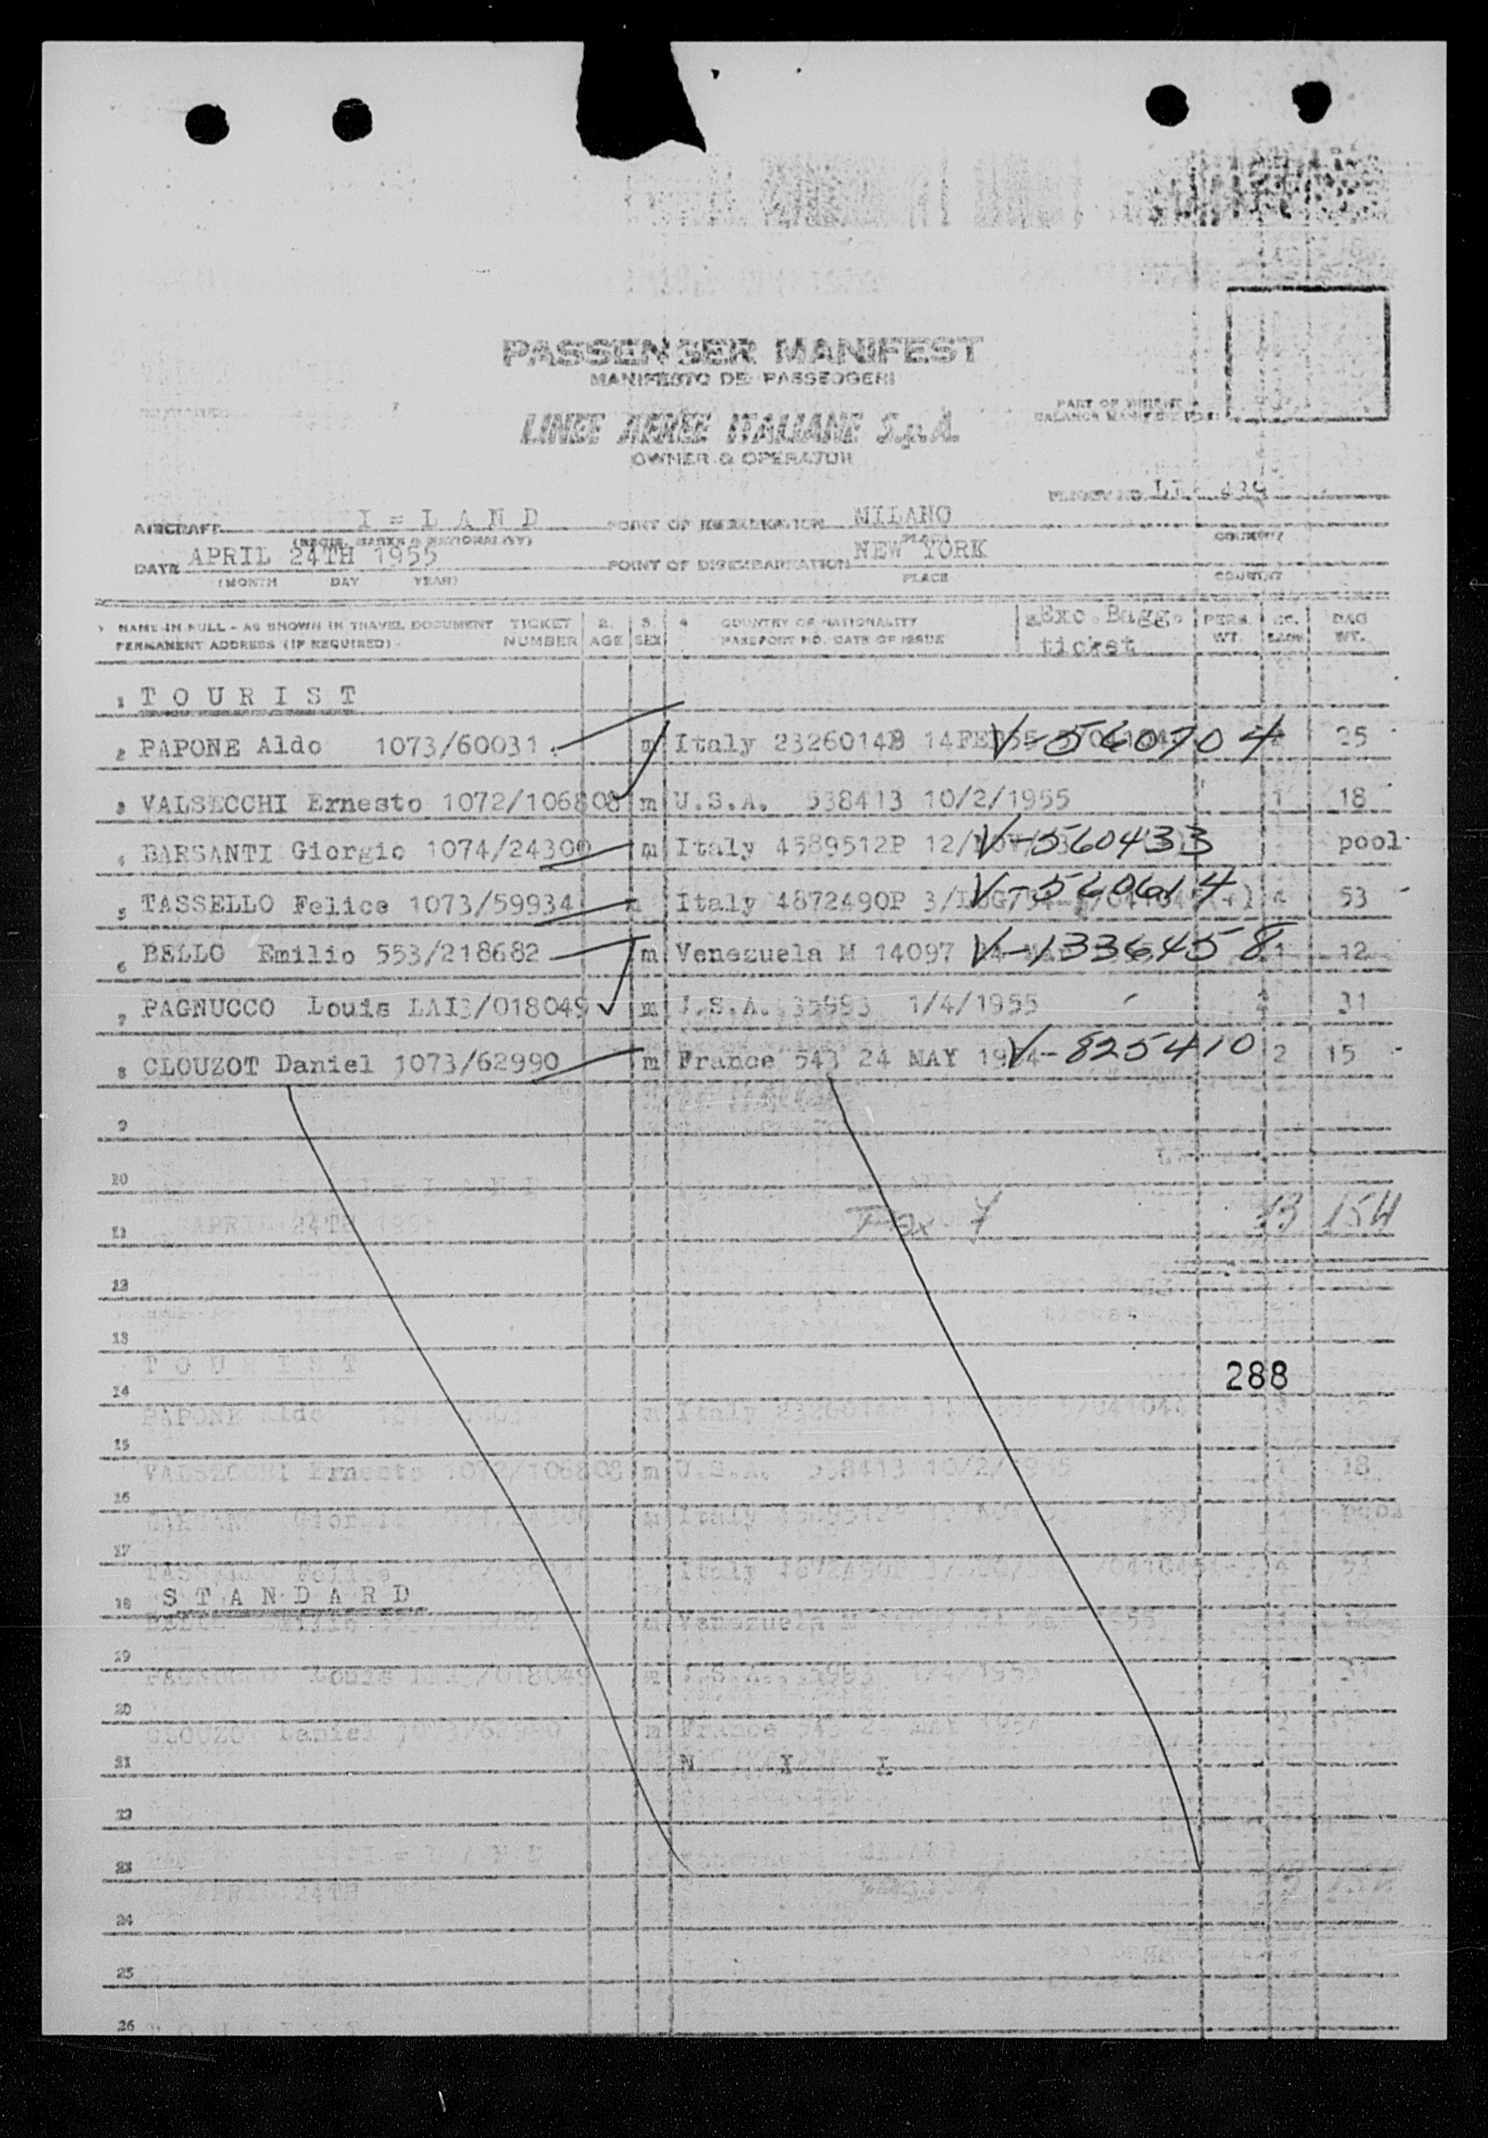 PASSENGER MANIFEST
MANIFESTO DEI PASSEGGERI
LINEE AEREE ITALIANE S.p.A.
OWNER & OPERATOR
PART OF WEIGHT &
BALANCE MANIFEST
FLIGHT NO. 439
AIRCRAFT I = L A N D POINT OF EMBARKATION MILANO
(REGIS. MARKS & NATIONALITY) PLACE COUNTRY
DATE APRIL 24TH 1955 POINT OF DISEMBARKATION NEW YORK
(MONTH DAY YEAR) PLACE COUNTRY
NAME IN FULL - AS SHOWN IN TRAVEL DOCUMENT TICKET 2. 3. 4 COUNTRY OF NATIONALITY Exc. Bagg. PERS. BAG
PERMANENT ADDRESS (IF REQUIRED) NUMBER AGE SEX PASSPORT NO. DATE OF ISSUE ticket WT. WT.
1 T O U R I S T
2 PAPONE Aldo 1073/60031 m Italy 2326014B 14FEB55 V-560704 25
3 VALSECCHI Ernesto 1072/106808 m U.S.A. 538413 10/2/1955 1 18
4 BARSANTI Giorgio 1074/24300 m Italy 4589512P 12/ V-560433 pool
5 TASSELLO Felice 1073/59934 Italy 4872490P 3/ V-560614 4 53
6 BELLO Emilio 553/218682 m Venezuela M 14097 V-1336458 1 12
7 PAGNUCCO Louis LAI3/018049 m U.S.A. 35993 1/4/1955 31
8 CLOUZOT Daniel 1073/62990 m France 543 24 MAY 1954 V-825410 2 15
9
10
11 Pax 7 13 154
12
13
288
14
15
16
17
18 S T A N D A R D
19
20
21 N I L
22
23
24
25
26